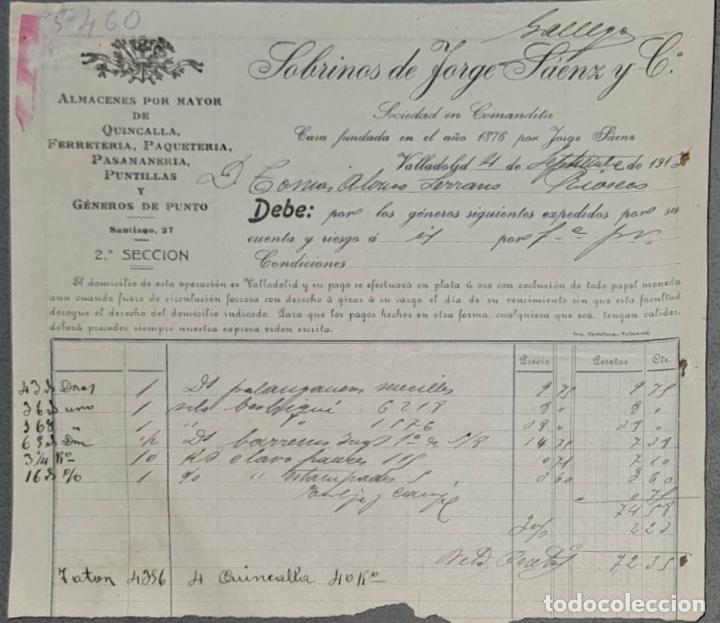 5-460
Gallego
Sobrinos de Jorge Sáenz y Cª
Sociedad en Comandita
Casa fundada en el año 1876 por Jorge Sáenz
ALMACENES POR MAYOR
DE
QUINCALLA,
FERRETERIA, PAQUETERIA,
PASAMANERIA,
PUNTILLAS
Y
GÉNEROS DE PUNTO
Santiago, 27
2.ª SECCION
Valladolid 21 de Septiembre de 191
D. Tomas Alonso Serrano Rioseco
Debe: por los géneros siguientes expedidos por su
cuenta y riesgo á por
Condiciones
El domicilio de esta operación es Valladolid y su pago se efectuará en plata ú oro con exclusión de todo papel moneda
aun cuando fuere de circulación forzosa con derecho á girar á su cargo el día de su vencimiento sin que esta facultad
derogue el derecho del domicilio indicado. Para que los pagos hechos en otra forma, cualquiera que sea, tengan validez,
deberá preceder siempre nuestra expresa orden escrita.
Imp. Castellana.-Valladolid.
Precio Pesetas Cts.
1 Ds palanganeros sencillos 9 75 9 75
uno 1 berbiquí 6218 8 " 8 "
" 1 " 1876 38 " 38 "
1/2 Ds barrenas 14 75 7 38
Ko 10 Ko clavo 71 7 10
16 1 " estampados 3 60 3 60
75
74 58
3 % 2 23
Neto Pesetas 72 35
4356 4 Quincalla 40 Ko
todocoleccion.net